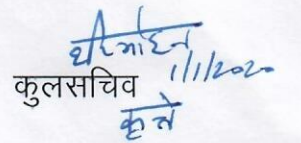 1/1/2020
कुलसचिव
कृते